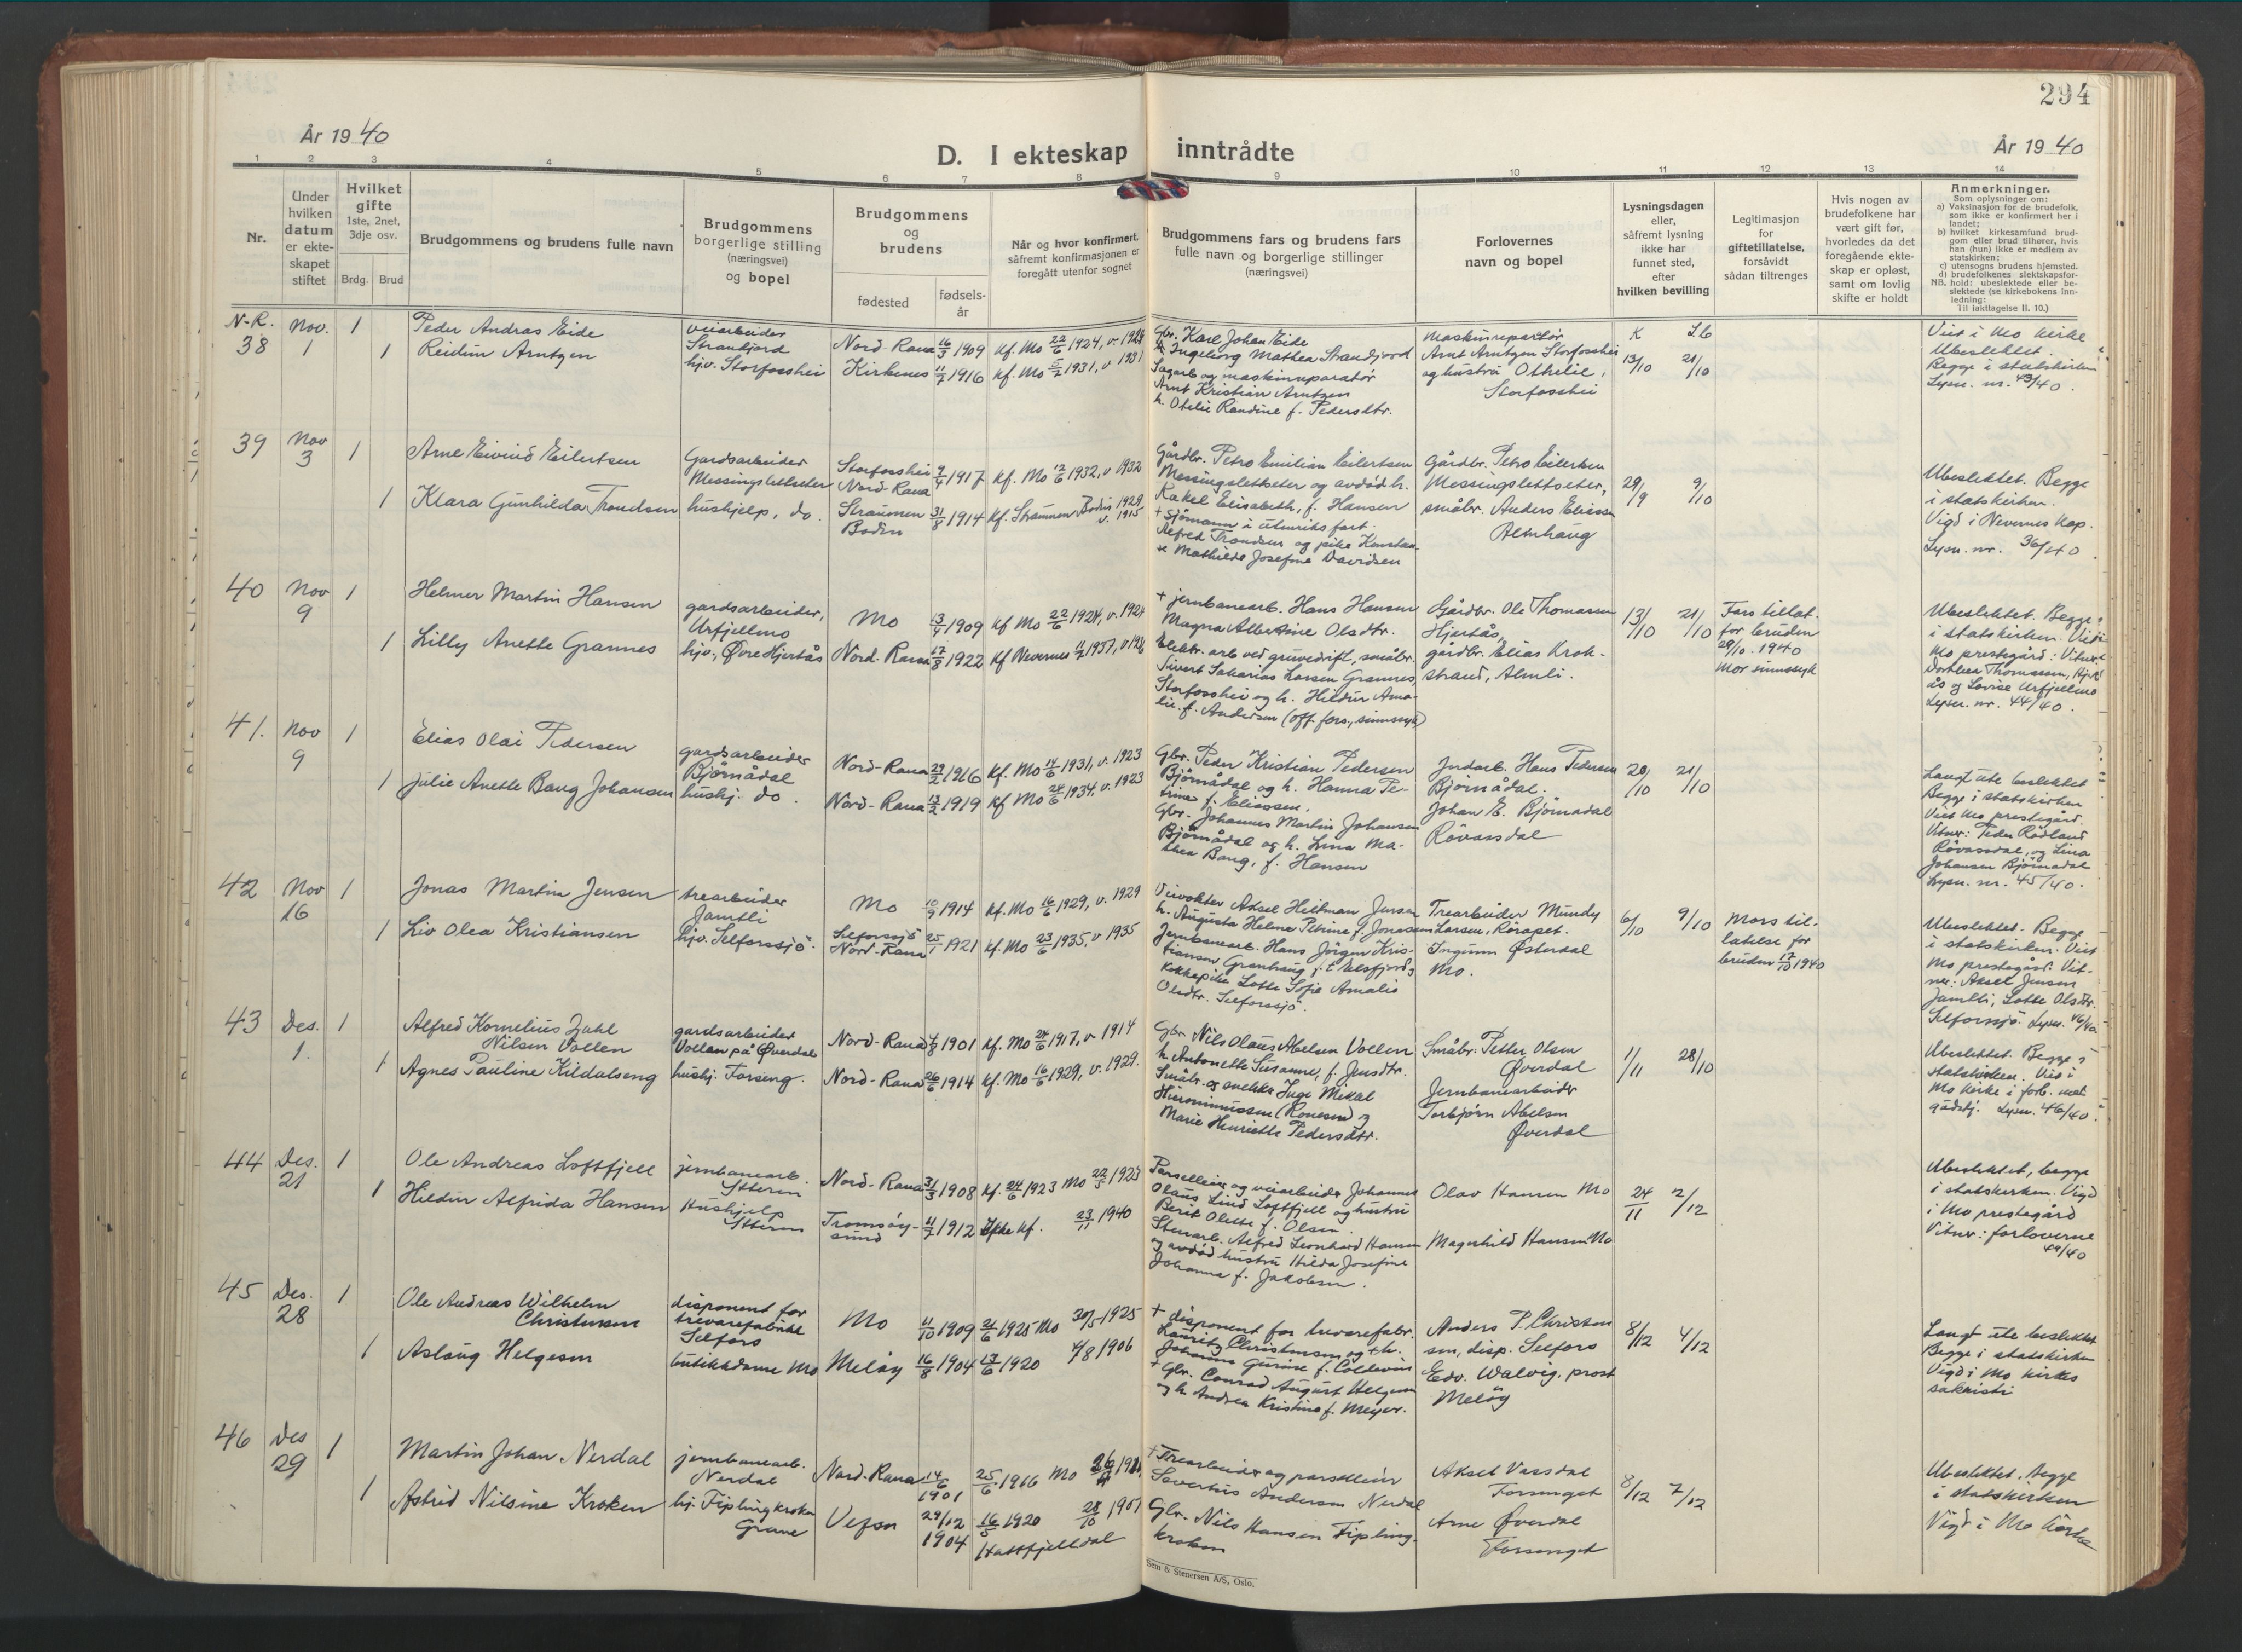 294
År 1940
D. I ekteskap inntrådte
År 1940
1 2 3 4 5 6 7 8 9 10 11 12 13 14
Nr.
Under hvilken datum er ekteskapet stiftet
Hvilket gifte
1ste, 2net, 3dje osv.
Brdg. Brud
Brudgommens og brudens fulle navn
Brudgommens borgerlige stilling (næringsvei) og bopel
Brudgommens og brudens
fødested
fødsels-år
Når og hvor konfirmert, såfremt konfirmasjonen er foregått utenfor sognet
Brudgommens fars og brudens fars fulle navn og borgerlige stillinger (næringsvei)
Forlovernes navn og bopel
Lysningsdagen eller, såfremt lysning ikke har funnet sted, efter hvilken bevilling
Legitimasjon for giftetillatelse, forsåvidt sådan tiltrenges
Hvis nogen av brudefolkene har vært gift før, hvorledes da det foregående ekteskap er opløst, samt om lovlig skifte er holdt
Anmerkninger.
Som oplysninger om:
a) Vaksinasjon for de brudefolk, som ikke er konfirmert her i landet;
b) hvilket kirkesamfund brudgom eller brud tilhører, hvis han (hun) ikke er medlem av statskirken;
c) utensogns brudens hjemsted.
d) brudefolkenes slektskapsforhold: ubeslektede eller beslektede (se kirkebokens innledning:
NB. Til iakttagelse II. 10.)
N-R.
38
Nov. 1
1
1
Peder Andras Eide
Reidun Arntzen
veiarbeider
Strandjord
hjv. Storfosshei
Nord-Rana 16/3 1909 Kf. Mo 22/6 1924, v. 1924
Kirkenes 11/7 1916 Kf. Mo 5/7 1931, v 1931
Gbr. Karl Johan Eide
Ingeborg Mathea Strandjord
Sagarb og maskinreparatør
Arnt Kristian Arntzen
h. Otelie Randine f. Pedersdtr.
Maskinreparatør
Arnt Arntzen Storfosshei
og hustru Othilie,
Storfosshei
K Lb
13/10 21/10
Viet i Mo kirke
Ubeslektet.
Begge i statskirken
Lysn. nr. 43/40.
39
Nov 3
1
1
Arne Eivind Eilertsen
Klara Gunhilda Trondsen
Gardsarbeider
Messingsletteter
hushjelp, do.
Storfosshei
Nord-Rana 9/4 1917 Kf. Mo 12/6 1932, v 1932
Straumen
Bodin 31/8 1914 Kf. Straumen Bodin 1929
v. 1915
Gårdbr. Petro Emilian Eilertsen
Messingsletteter og avdød h.
Rakel Elisabeth, f. Hansen
+ Sjømann i utenriks fart.
Alfred Trondsen og pike Konstan-
se Mathilde Josefine Davidsen
Gårdbr. Petro Eilertsen
Messingsletteter,
småbr. Anders Eliassen
Almhaug
29/9 9/10
Ubeslektet. Begge
i statskirken.
Vigd i Nevernes Kap.
Lysn. nr. 36/40.
40
Nov 9
1
1
Helmer Martin Hansen
Lilly Anette Grannes
gardsarbeider,
Urfjellmo
hjv., Øvre Hjertås
Mo 13/4 1909 Kf Mo 22/6 1924, v. 1924
Nord-Rana 17/8 1922 Kf Nevernes 11/7 1937, v
+ jernbanearb. Hans Hansen
Magna Albertine Olsdtr.
Elektr. arb ved gruvedrift, småbr.
Sivert Sakarias Larsen Grannes,
Storfosshei og h. Hildur Ama-
lie f. Andersen (off. fors., sinnssyk)
Gårdbr. Ole Thomassen
Hjertås,
gårdbr. Elias Krok-
strand, Almli.
13/10 21/10
Fars tillat.
for bruden
29/10. 1940
Mor sinnssyk
Ubeslektet. Begge
i statskirken. Viet i
Mo prestegård: Vitner:
Dorthea Thomassen, Hjert-
ås og Lovise Urfjellmo
Lysn. nr. 44/40.
41.
Nov 9
1
1
Elias Olai Pedersen
Julie Anette Bang Johansen
gardsarbeider
Bjørnådal
hushj. do.
Nord-Rana 29/2 1916 Kf. Mo 14/6 1931, v. 1923
Nord-Rana 13/2 1919 Kf Mo 24/6 1934, v. 1923
Gbr. Peder Kristian Pedersen
Bjørnådal og h. Hanna Pe-
trine f. Eliassen.
Gbr. Johannes Martin Johansen
Bjørnådal og h. Lina Ma-
thea Bang, f. Hansen
Jordarb. Hans Pedersen
Bjørnådal.
Johan E. Bjørnådal
Røvassdal
20/10 21/10
Langt ute beslektet
Begge i statskirken
Viet Mo prestegård.
Vitner: Peder Rødland
Røvassdal, og Lina
Johansen Bjørnådal
Lysn. nr. 45/40.
42
Nov 16
1
1
Jonas Martin Jensen
Liv Olea Kristiansen
trearbeider
Jamtli
hjv. Selforssjø.
Mo 10/9 1914 Kf. Mo 16/6 1929, v. 1929
Selforssjø
Nord-Rana 25/1 1921 Kf. Mo 23/6 1935, v 1935
Veivokter Aksel Heitman Jensen
h. Augusta Helma Petrine f. Jonassen
Jernbanearb. Hans Jørgen Kris-
tiansen Granhaug f. t Elsfjord,
Kokkepike Lotte Sofie Amalie
Olsdtr. Selforssjø.
Trearbeider Mundy
Larsen, Rørapet.
Ingunn Østerdal
Mo.
6/10 9/10
Mors til-
latelse for
bruden 17/10 1940
Ubeslektet. Begge
i statskirken. Viet
Mo prestegård. Vit-
ner: Aksel Jensen
Jamtli, Lotte Olsdtr.
Selforssjø. Lysn. 46/40
43
Des. 1.
1
1
Alfred Kornelius Zahl
Nilsen Vollen
Agnes Pauline Kildalseng
gardsarbeider
Vollen på Øverdal
hushj. Forseng.
Nord-Rana 1901 Kf. Mo 24/6 1917, v. 1914
Nord-Rana 26/6 1914 Kf. Mo 16/6 1929, v. 1929.
Gbr. Nils Olaus Abelsen Vollen
h. Antonette Susanne, f. Jensdtr.
Småbr. og snekker Inge Mikal
Hieronimussen (Ronesen) og
Marie Henriette Pedersdtr.
Småbr. Petter Olsen
Øverdal
Jernbanearbeider
Torbjørn Abelsen
Øverdal
1/11 28/10
Ubeslektet. Begge i
statskirken. Vied i
Mo kirke i forb. med
gudstj. Lysn. 46/40.
44
Des. 21
1
1
Ole Andreas Loftfjell
Hildur Alfrida Hansen
jernbanearb.
Ytteren
Hushjelp
Ytteren
Nord-Rana 31/3 1908 Kf. 24/6 1923 Mo 22/5 1923
Tromsøy-
sund 11/7 1912 Ikke kf. 23/11 1940
Parselleier og veiarbeider Johannes
Olaus Lind Loftfjell og hustru
Berit Olette f. Olsen.
Stenarb. Alfred Leonhard Hansen
og avdød hustru Hilda Josefine
Johanna f. Jakobsen.
Olav Hansen Mo
Magnhild Hansen Mo
24/11 2/12
Ubeslektet, begge
i statskirken. Vigd
i Mo prestegård
Vitner: forloverne
49/40
45
Des. 28
1
1
Ole Andreas Wilhelm
Christensen
Aslaug Helgesen
disponent for
trevarefabrikk
Selfors
butikkdame Mo
Mo 11/10 1909 21/6 1925 Mo 30/5 1925
Meløy 16/8 1904 13/6 1920 4/8 1906
+ disponent for trevarefabr.
Lauritz Christensen og + h.
Johanna Gurine f. Coldevin
+ Gbr. Conrad August Helgesen
og h. Andrea Kristine f. Meyer.
Anders P. Christen
sen, disp. Selfors
Edv. Walvig, prost
Meløy
8/12 4/12
Langt ute beslektet
Begge i statskirken
Vigd i Mo kirkes
sakristi
46
Des 29
1
1
Martin Johan Nerdal
Astrid Nilsine Kroken
jernbanearb.
Nerdal
hj. Fiplingkroken
Grane
Nord-Rana 14/6 1901 25/6 1916 Mo
Vefsn 29/12 1904 16/5 1920 28/10 1907
Hattfjelldal
+ Trearbeider og parselleier
Severtius Andersen Nerdal
Gbr. Nils Hansen Fipling-
kroken
Aksel Vassdal
Forsenget
Arne Øverdal
Forsenget
8/12 7/12
Ubeslektet, begge
i statskirken
Vigd i Mo kirke
Sem & Stenersen A/S, Oslo.